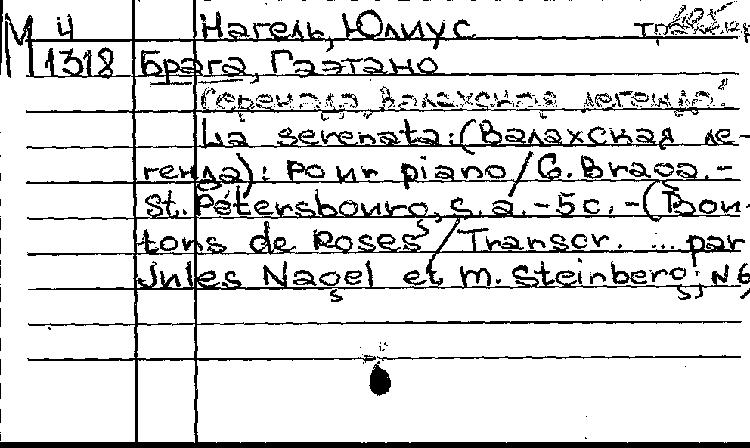 М 4 Нагель, Юлиус
1318 Брага, Гаэтано
Серенада. Валахская легенда.
La serenata: (Валахская ле-
генда): pour piano / G. Braga. -
St. Pétersbourg, s. a. - 5 c. - (Bou-
tons de Roses / Transcr. ... par
Jules Nagel et M. Steinberg; N 6